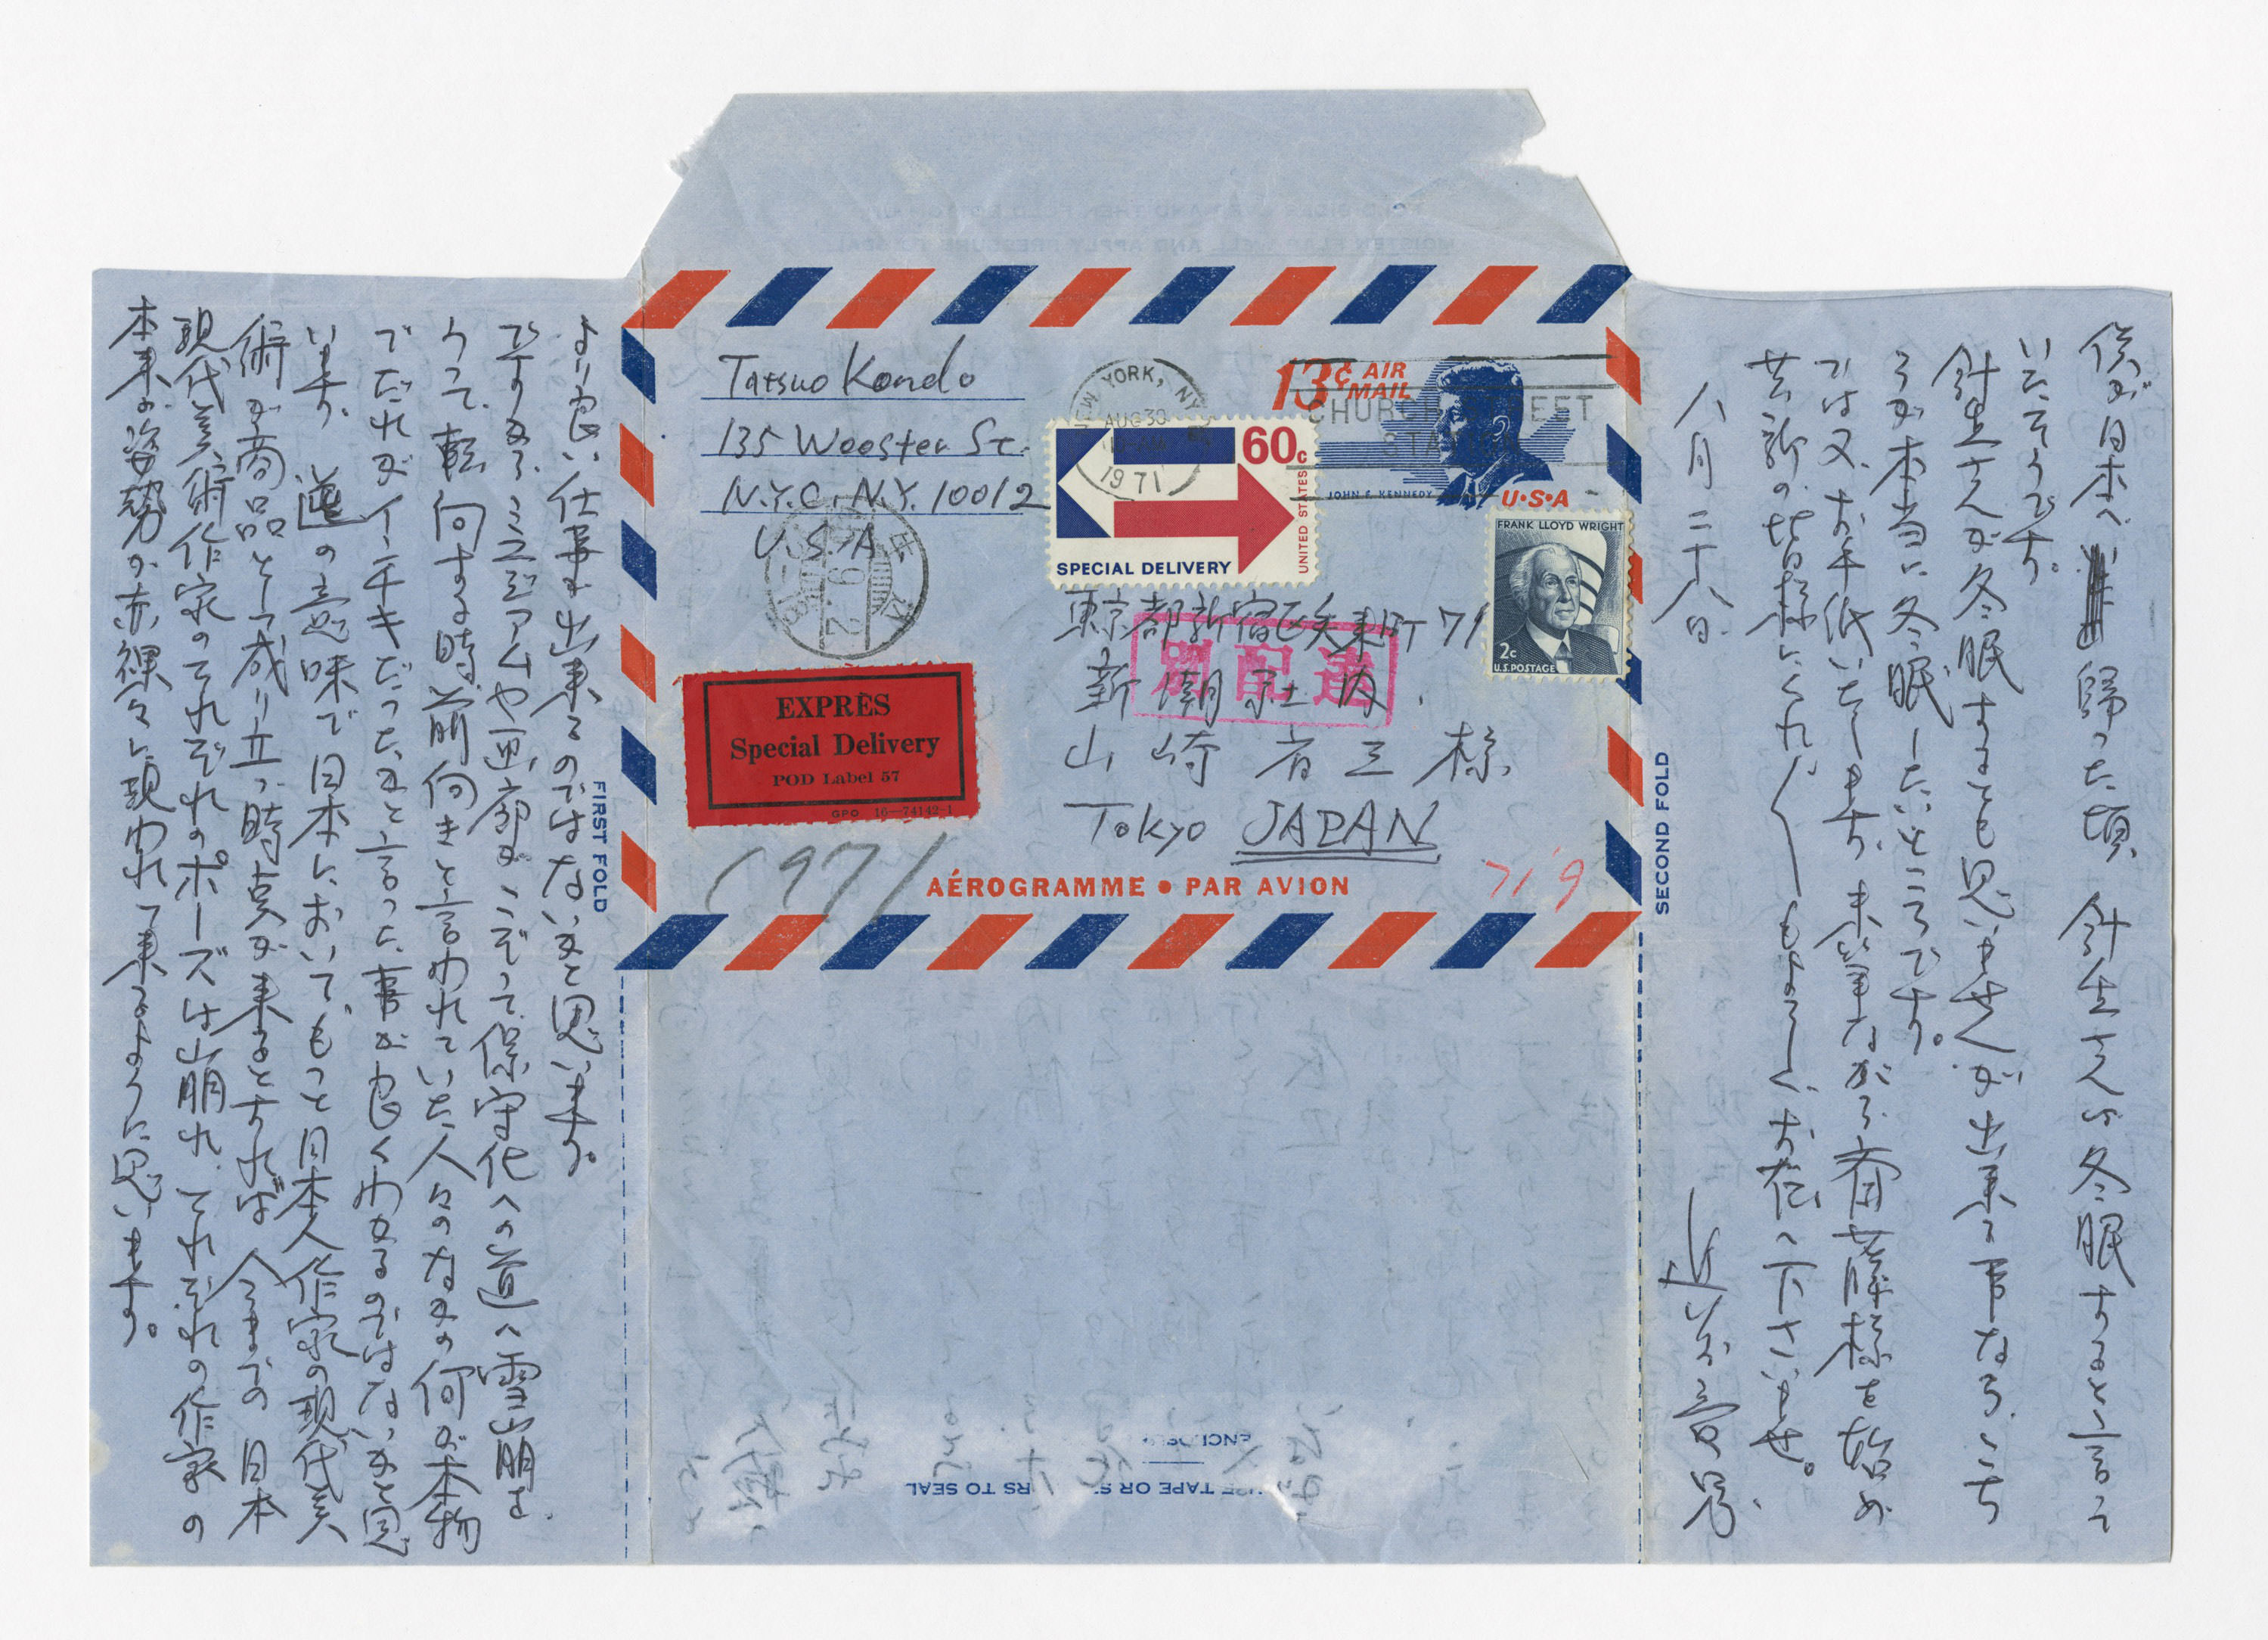 より良い仕事が出来るのではないかと思います。
ですから ミユジアムや画廊が こぞって、保守化への道へ雪崩を
うって、転向する時、前向きと言われていた人々のなかの何が本物
でだれがインチキだったかと言った事が良くわかるのではないかと思
います。 逆の意味で日本において、もっと日本人作家の現代美
術が商品として成り立つ時点が来るとすれば 今までの日本
現代美術作家のそれぞれのポーズは崩れ、それぞれの作家の
本来の姿勢が赤裸々に現われて来るように思います。
Tatsuo Kondo
135 Wooster St.
N.Y.C. N.Y. 10012
U.S.A
NEW YORK, NY
AUG 30
1971
13¢ AIR MAIL
CHURCH STREET
STATION
JOHN F. KENNEDY
U·S·A
60c
UNITED STATES
SPECIAL DELIVERY
FRANK LLOYD WRIGHT
2c
U.S. POSTAGE
東京都新宿区矢来町71
新潮社内
山崎省三様
Tokyo JAPAN
別配達
EXPRÈS
Special Delivery
POD Label 57
GPO 16—74142-1
1971
AÉROGRAMME • PAR AVION
71 9
FIRST FOLD
SECOND FOLD
僕が日本へ帰った頃、針生さんは冬眠すると言って
いたそうです。
針生さんが冬眠するとも思いませんが 出来る事なら、こち
らが本当に冬眠したいところです。
では又、お手紙いたします。末筆ながら斉藤様を始め
芸新の皆様にくれぐれもよろしくお伝え下さいませ。
八月二十八日